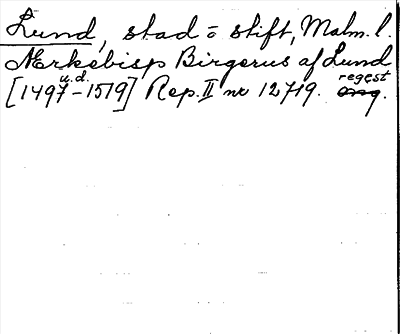 Lund, stad o stift, Malm. l.
Ærkebisp Birgerus af Lund
u.d. regest
[1497-1519] Rep. II nr 12719.